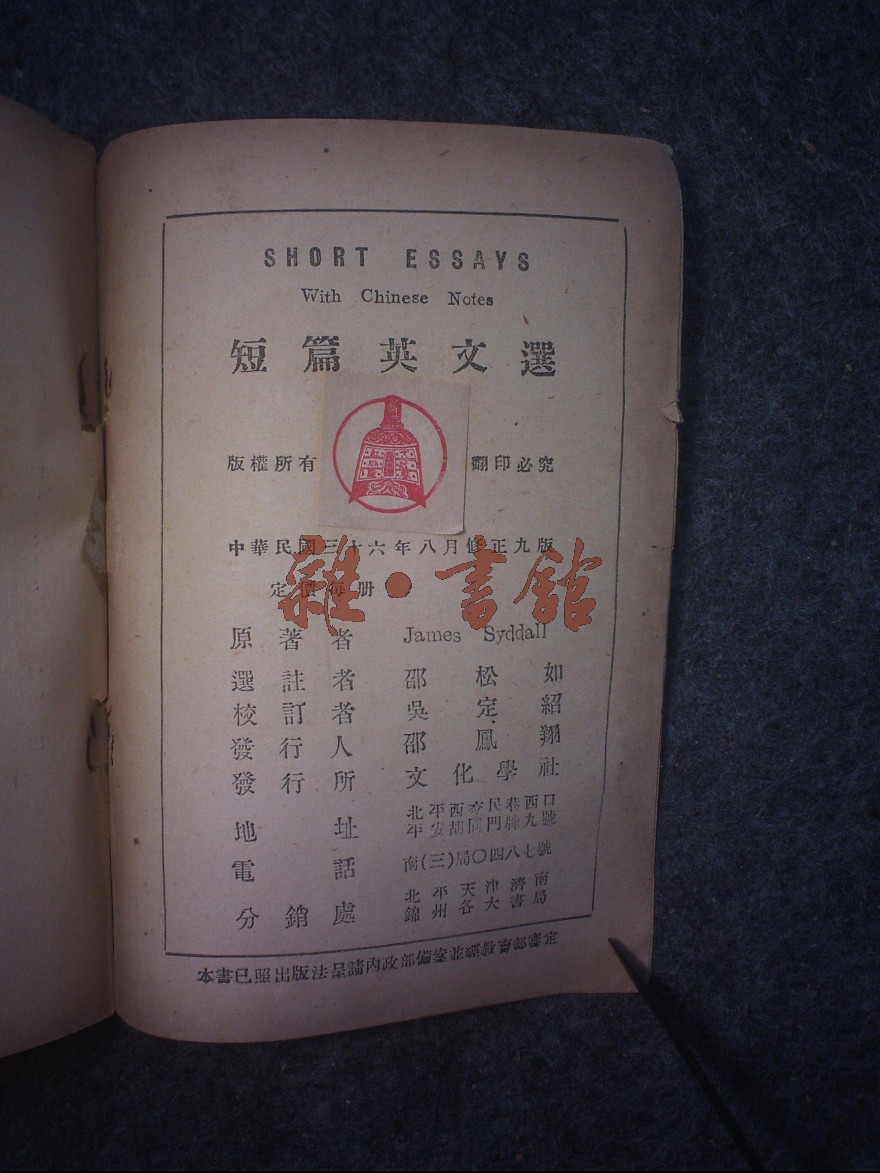 SHORT ESSAYS
With Chinese Notes
短篇英文選
版權所有 翻印必究
中華民國三十六年八月修正九版
定價每册
雜·書館
原著者 James Syddall
選註者 邵松如
校訂者 吳定紹
發行人 邵鳳翔
發行所 文化學社
地址 北平西交民巷西口
平安胡同門牌九號
電話 南(三)局〇四八七號
分銷處 北平天津濟南
錦州各大書局
本書已照出版法呈請內政部備案並經教育部審定